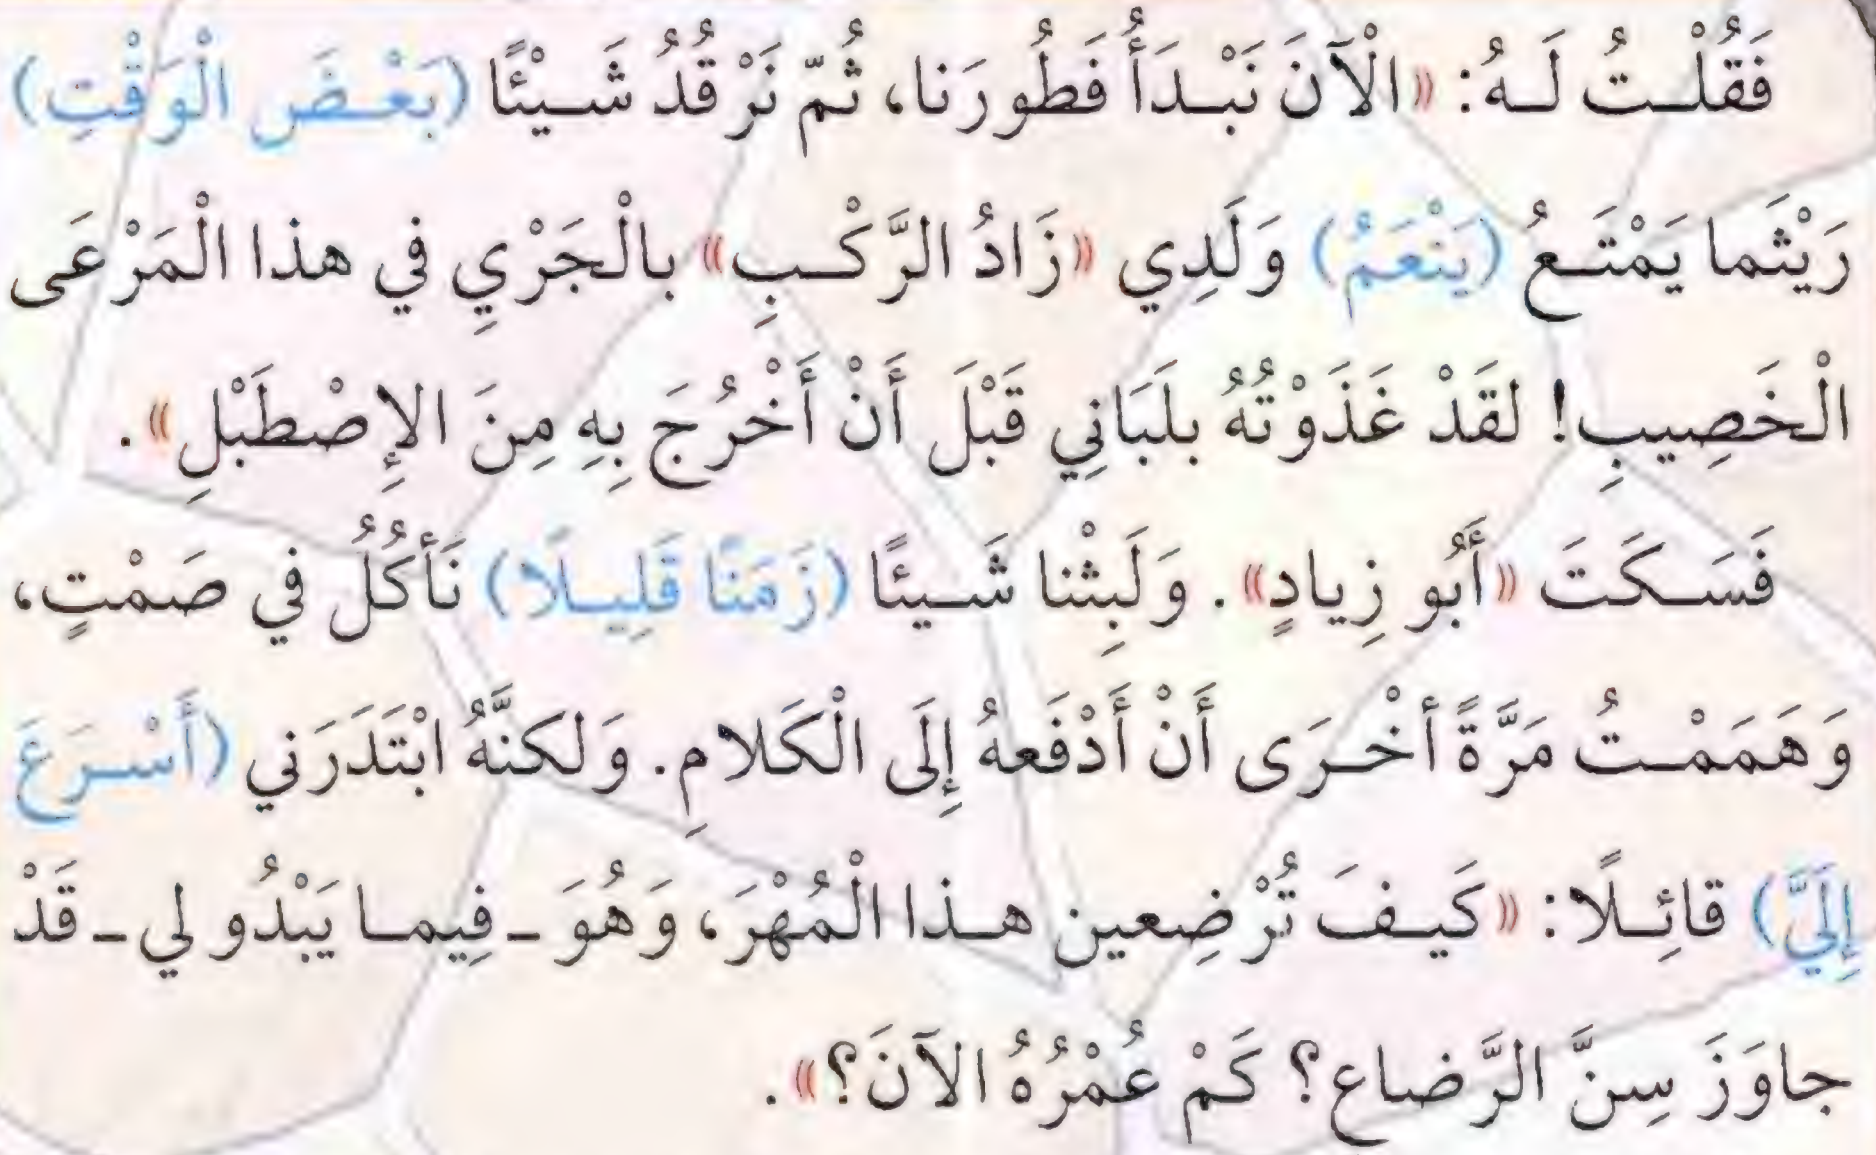 فَقُلْتُ لَهُ: «الْآنَ نَبْدَأُ فَطُورَنا، ثُمّ نَرْقُدُ شَيْئًا (بَعْضَ الْوَقْتِ)
رَيْثَما يَمْتَعُ (يَنْعَمُ) وَلَدِي «زَادُ الرَّكْبِ» بالْجَرْيِ في هذا الْمَرْعَى
الْخَصِيبِ! لقَدْ غَذَوْتُهُ بلَبَانِي قَبْلَ أَنْ أَخْرُجَ بِهِ مِنَ الإِصْطَبْلِ».
فَسَكَتَ «أَبُو زِيادٍ». وَلَبِثْنا شَيئًا (زَمَنًا قَلِيلًا) نَأكُلُ في صَمْتٍ،
وَهَمَمْتُ مَرَّةً أخْرَى أَنْ أَدْفَعهُ إِلَى الْكَلامِ. وَلكنَّهُ ابْتَدَرَني (أَسْرَعَ
إِلَيَّ) قائِلًا: «كَيفَ تُرْضِعين هذا الْمُهْرَ، وَهُوَ ـ فِيما يَبْدُو لي ـ قَدْ
جاوَزَ سِنَّ الرَّضاع؟ كَمْ عُمْرُهُ الآنَ؟».